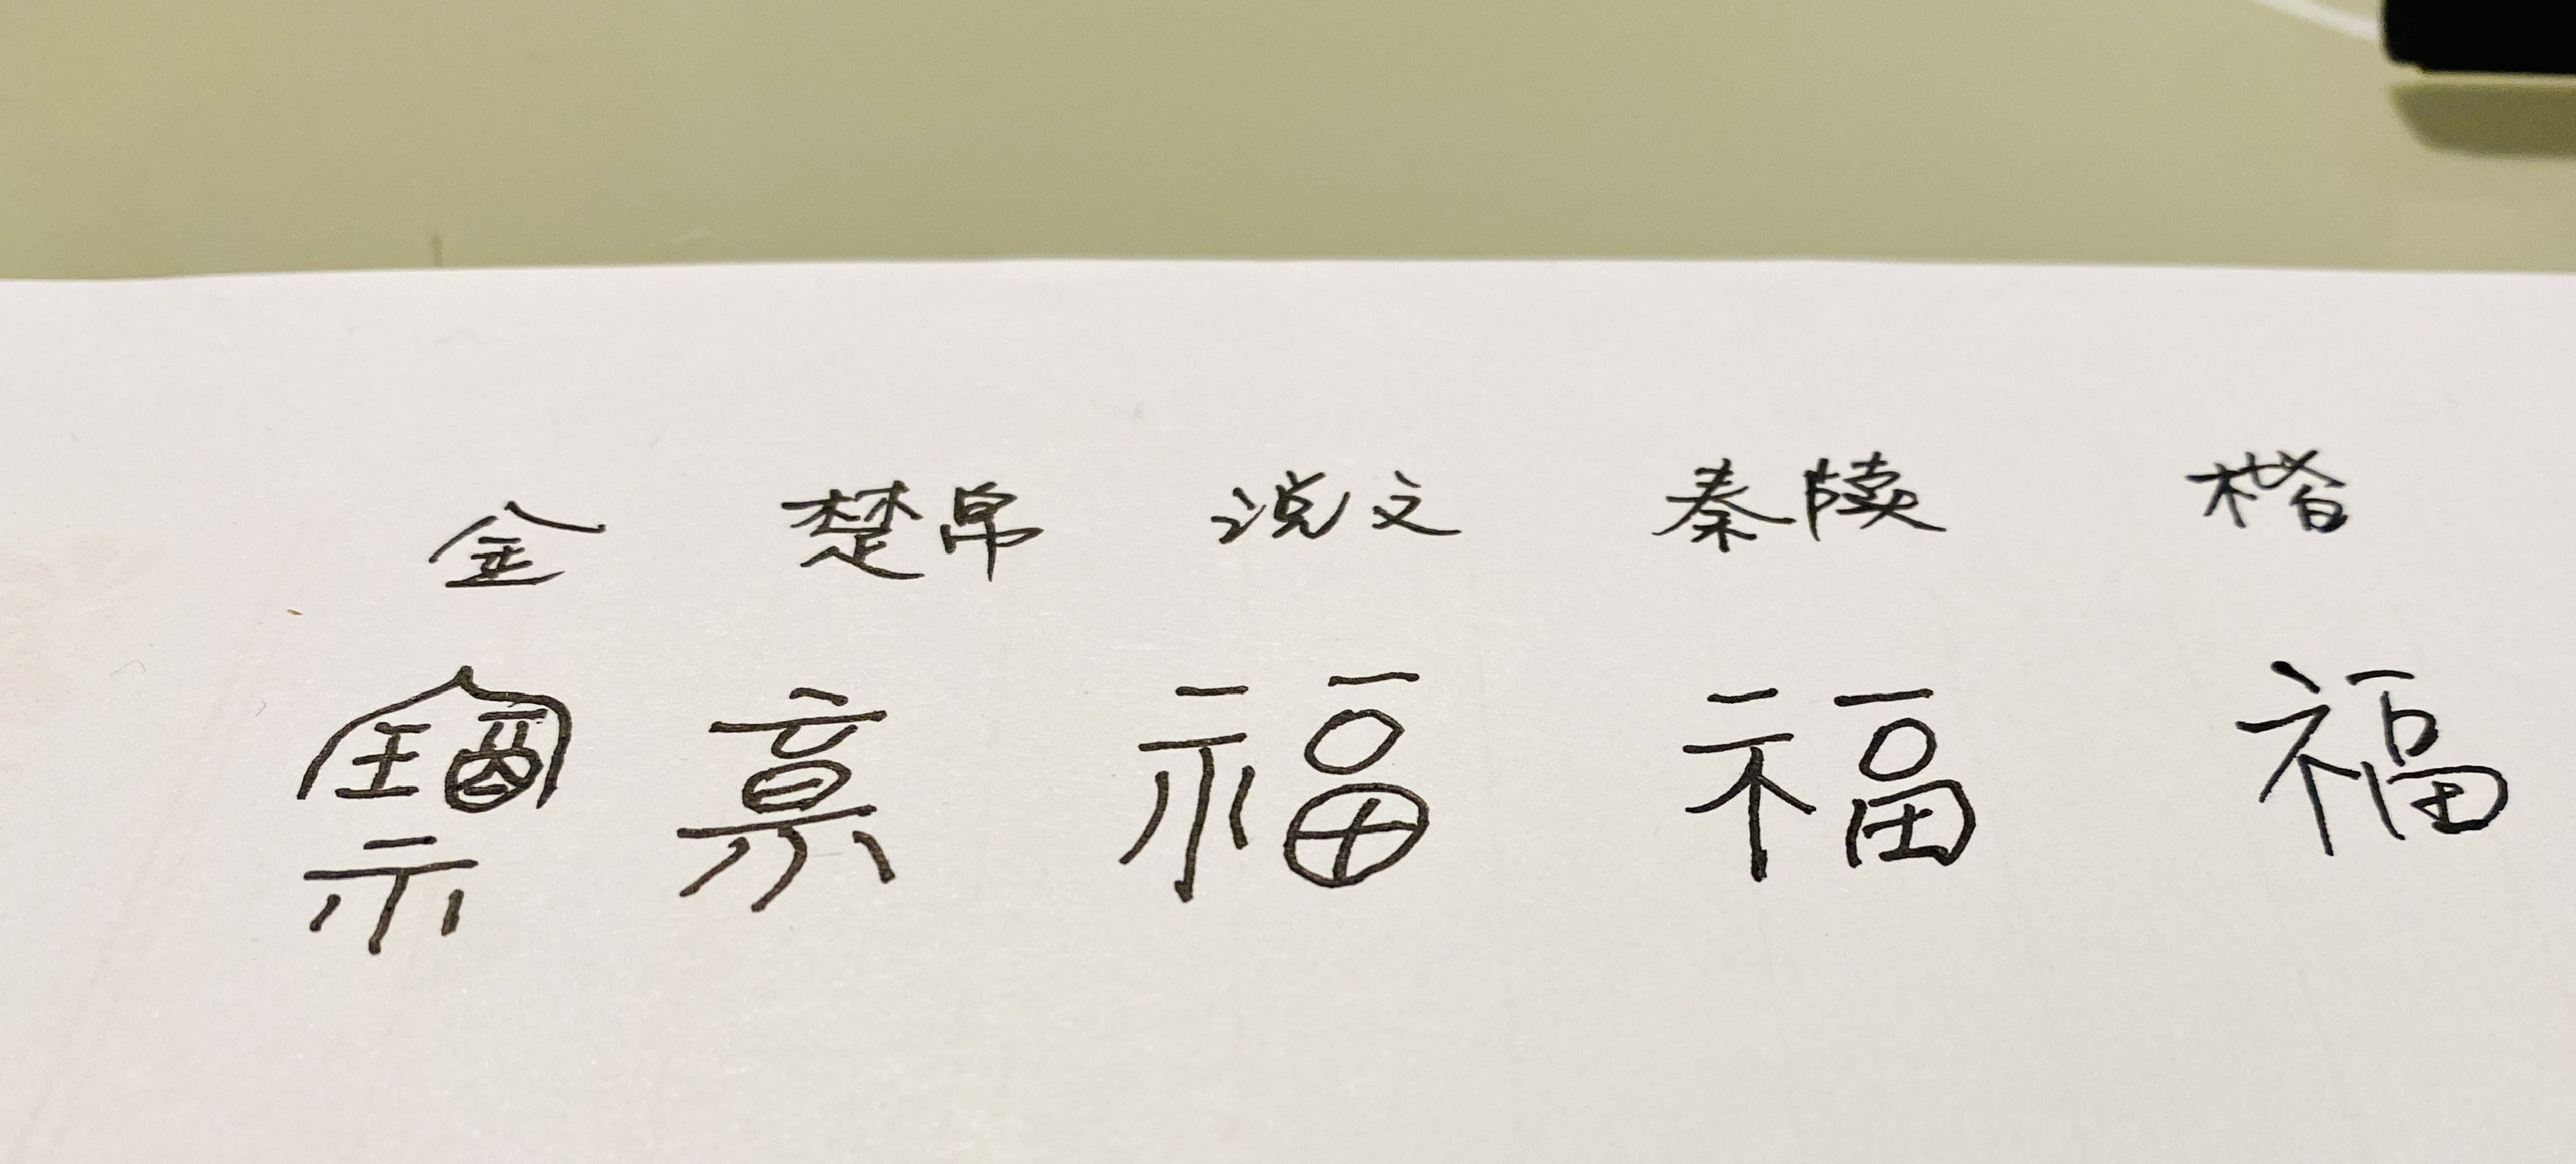 金 楚帛 说文 秦牍 楷
福 福 福 福 福